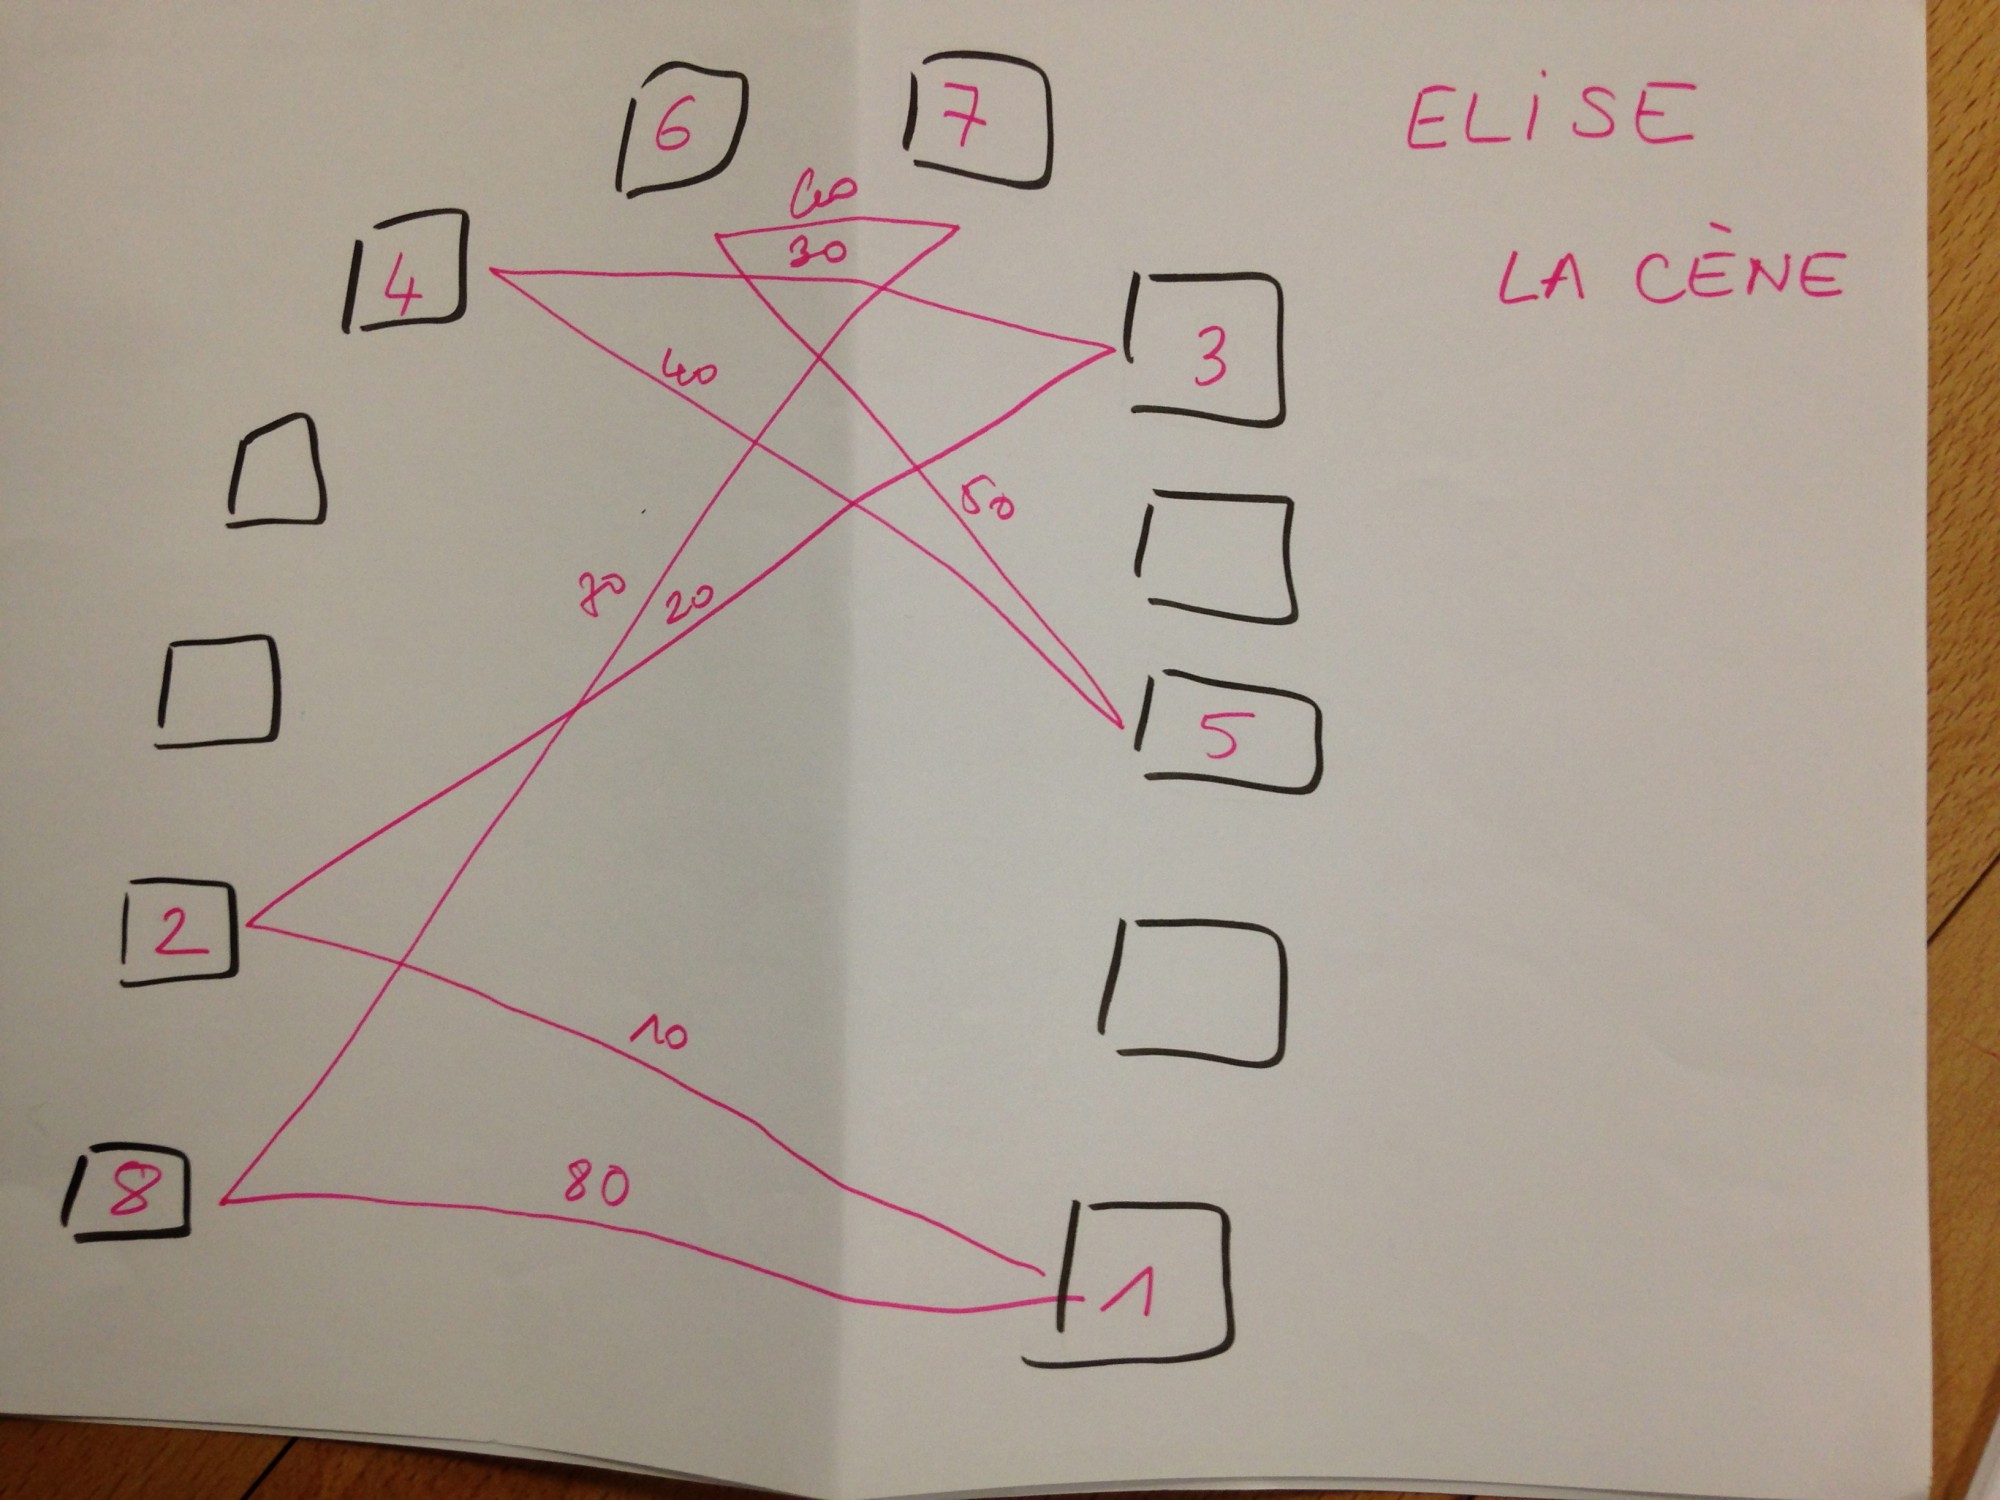 ELISE
LA CÈNE
6
7
60
30
4
3
40
50
70
20
5
2
10
80
8
1